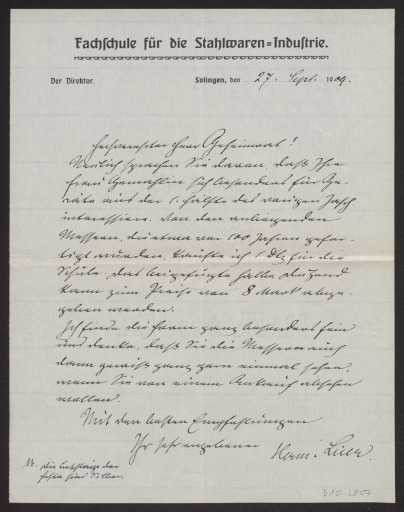 Fachschule für die Stahlwaren=Industrie.
Der Direktor.
Solingen, den 27. Sept. 1909.
Hochverehrter Herr Geheimrat!
Neulich sprachen Sie davon, daß Ihre
Frau Gemahlin sich besonders für Ge-
räte aus der 1. Hälfte des vorigen Jahrh
interessiere. Von den anliegenden
Messern, die etwa vor 100 Jahren gefer-
tigt wurden, kaufte ich 1 Dtz. für die
Schule. Das beigefügte halbe Dutzend
kann zum Preise von 8 Mark abge-
geben werden.
Ich finde die Form ganz besonders fein
und denke, daß Sie die Messer auch
dann gewiß ganz gern einmal sehen,
wenn Sie von einem Ankauf absehen
wollen.
Mit den besten Empfehlungen
Ihr sehr ergebener
N. die
sind Silber.